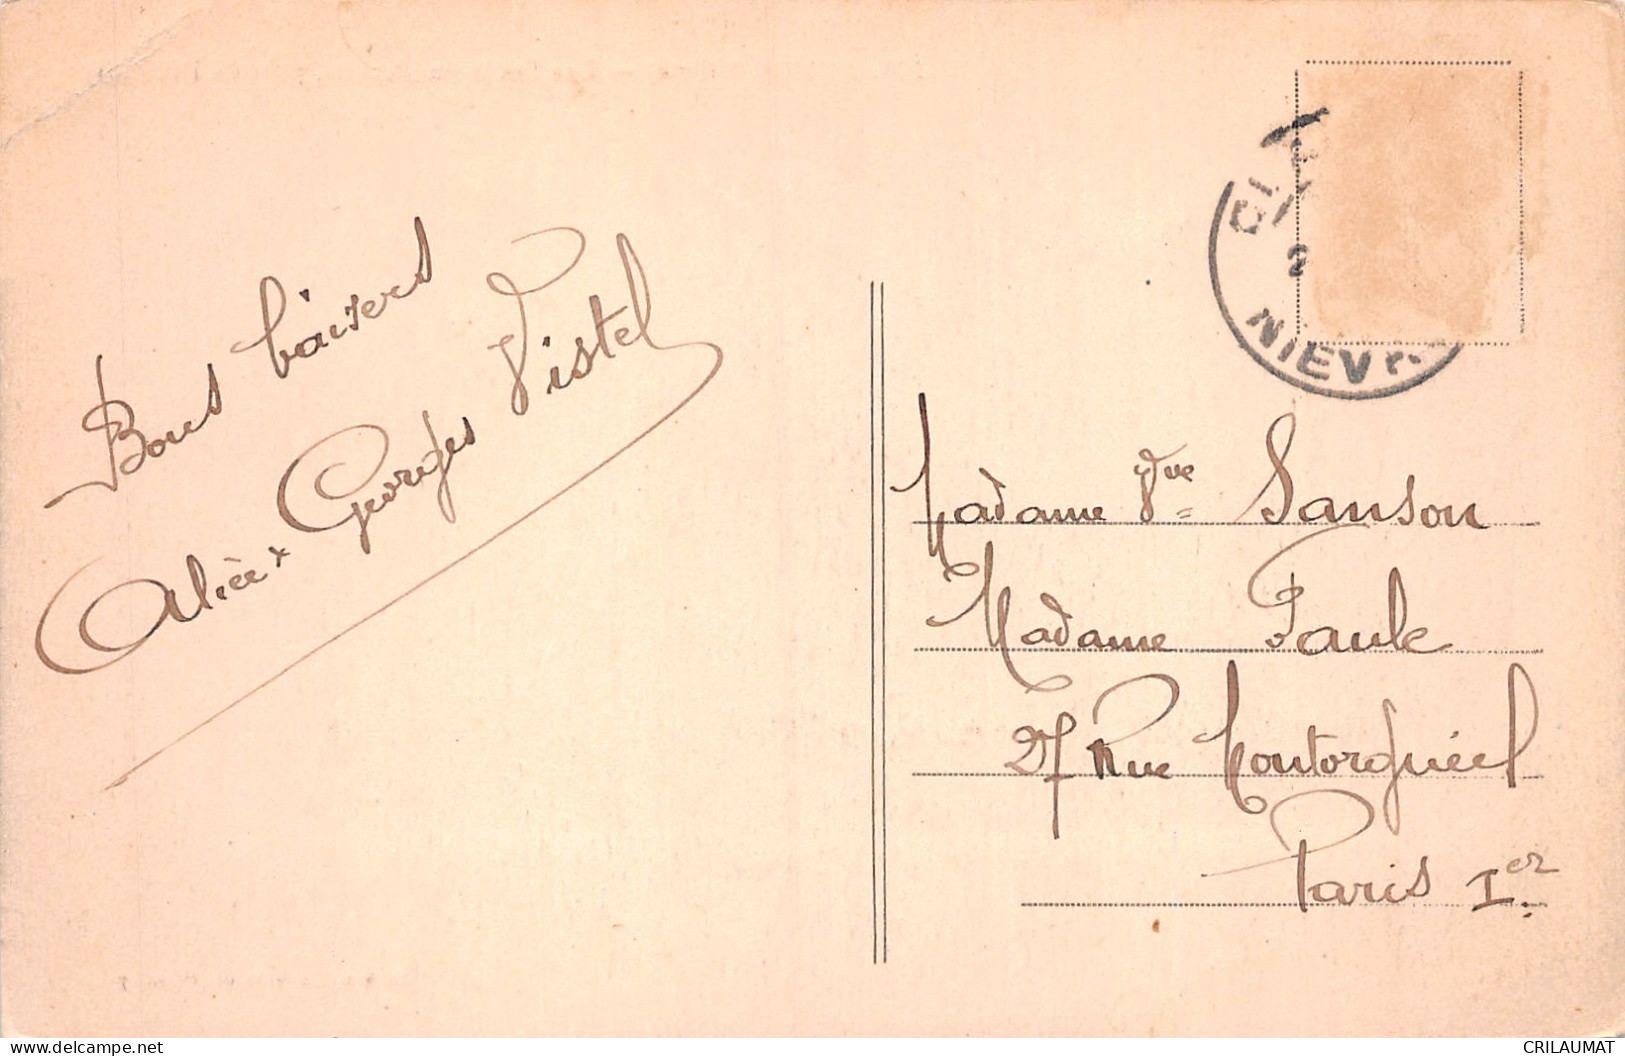 Bons baisers
Alice & Georges Vistel
NIEVR
Madame Vve Sanson
Madame Paule
27 Rue Montorgueil
Paris Ier
www.delcampe.net
CRILAUMAT